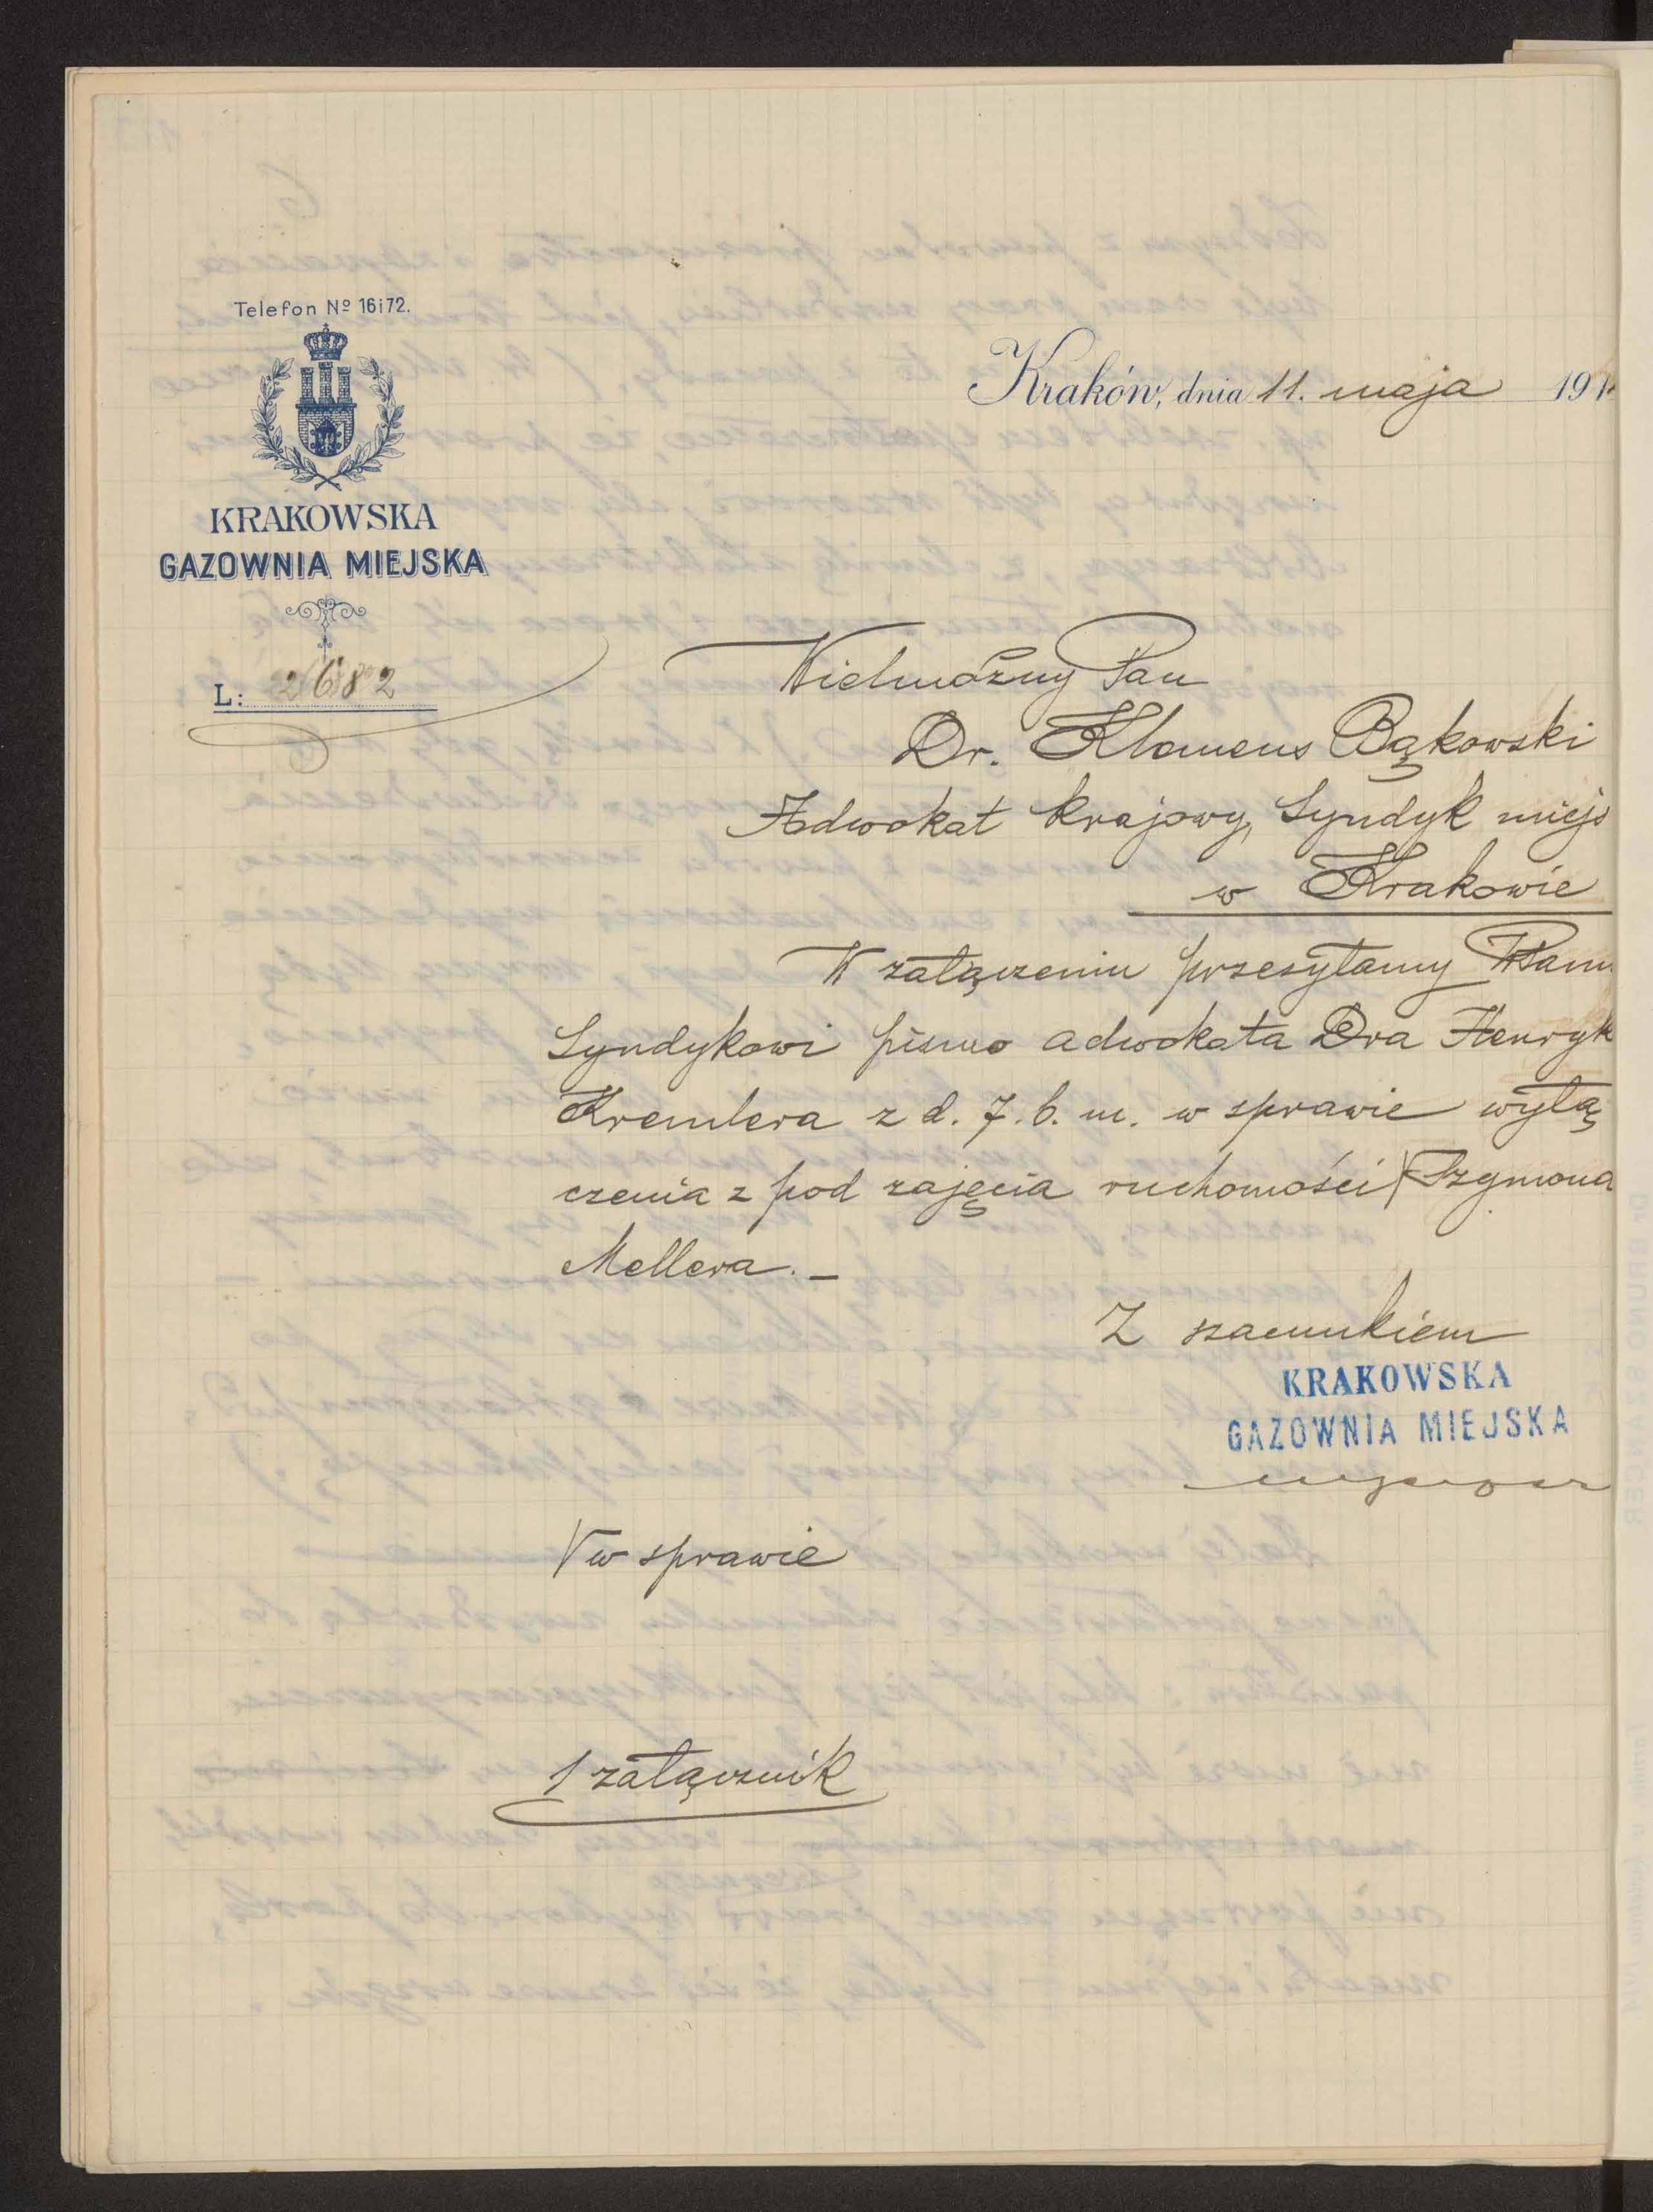 Telefon № 16 i 72.
KRAKOWSKA
GAZOWNIA MIEJSKA
L: 2682
Kraków, dnia 11. maja 191
Wielmożny Pan
Dr. Klemens Bąkowski
Adwokat krajowy, Syndyk miejs
w Krakowie
W załączeniu przesyłamy WPanu
Syndykowi pismo adwokata Dra Henryk
Kremlera z d. 7. b. m. w sprawie wyłą
czenia z pod zajęcia ruchomości √ Szymona
Mellera. –
Z szacunkiem
KRAKOWSKA
GAZOWNIA MIEJSKA
√ w sprawie
1 załącznik